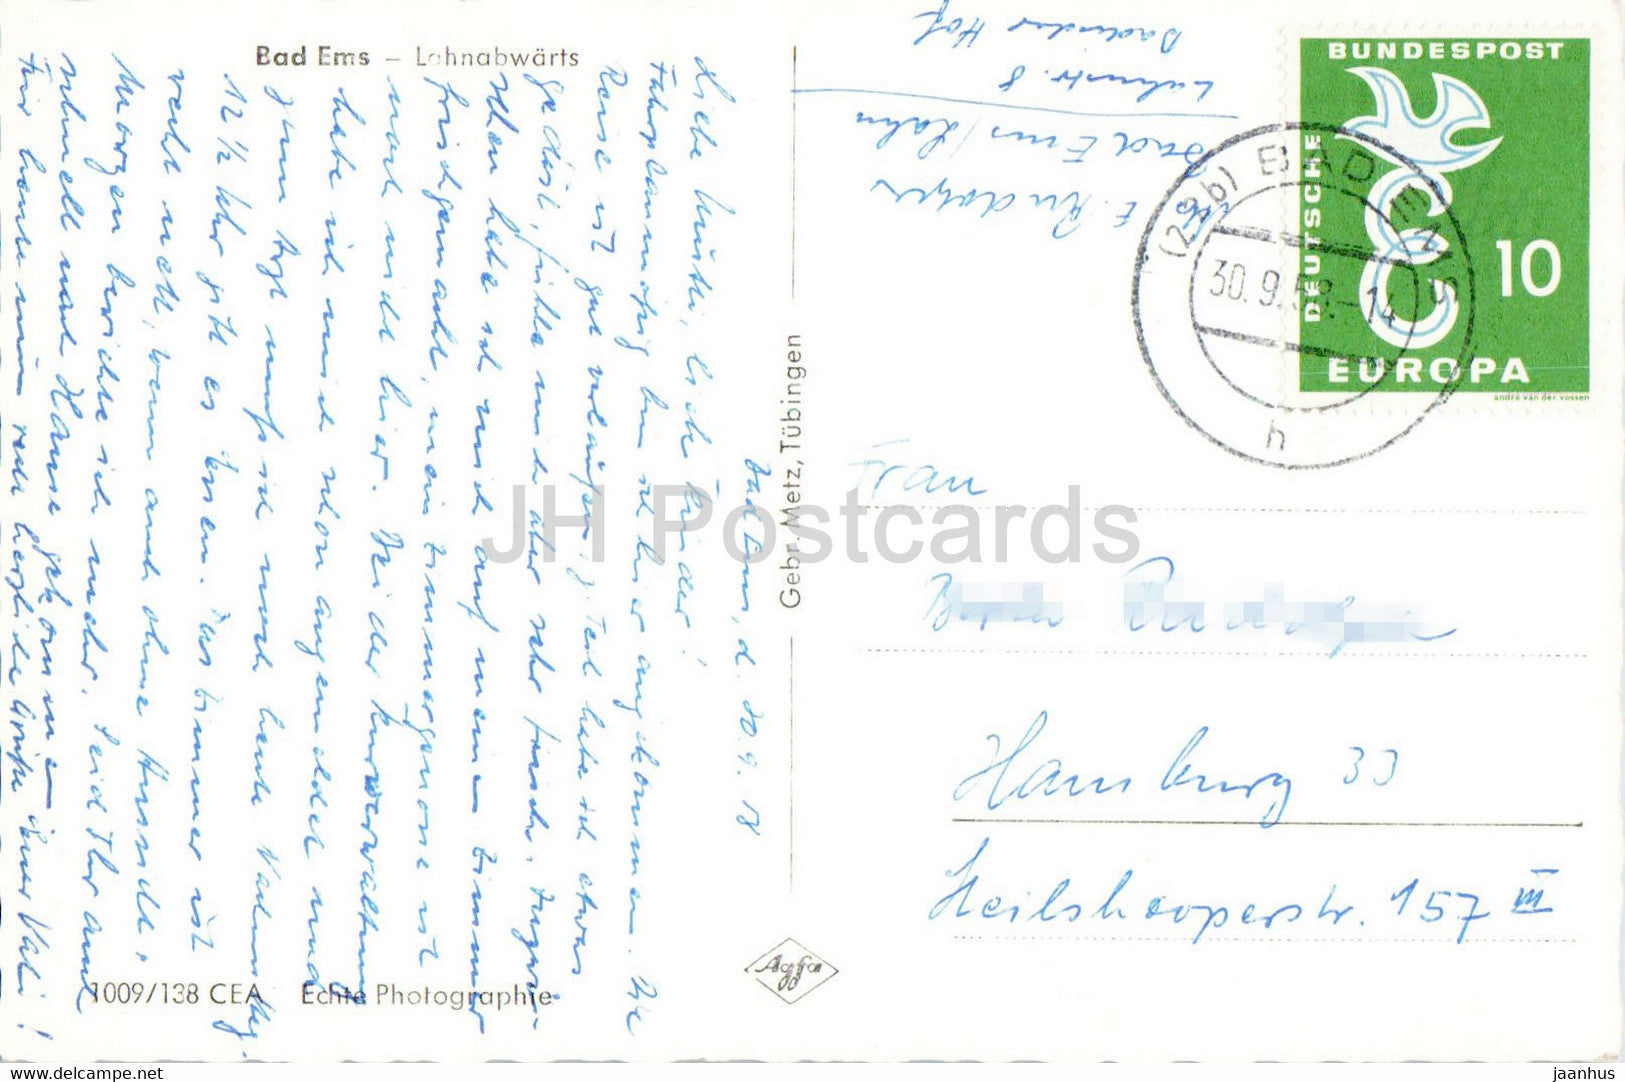 Bad Ems – Lahnabwärts
Bad Ems, d. 30.9.58
Liebe Mutti, liebe Kinder!
Fahrplanmäßig bin ich hier angekommen. Die
Reise ist gut verlaufen, z. Teil habe ich etwas
gedöst, fühle mich aber sehr frisch. Inzwi-
schen habe ich mich auf meinem Zimmer
frischgemacht, mein Zimmergenosse ist
noch nicht hier. Bei der Kurverwaltung
habe ich mich schon angemeldet und
zum Arzt muß ich noch heute Nachmittag.
12 ½ Uhr gibt es Essen. Das Zimmer ist
recht nett, wenn auch ohne Aussicht.
Morgen berichte ich mehr. Seid Ihr auch
schnell nach Hause gekommen?
Für heute nun recht herzliche Grüße Euer Vati!
1009/138 CEA Echte Photographie
Gebr. Metz, Tübingen
Agfa
Abs. E.
Bad Ems/Lahn
Lahnstr. 8
Hof
BUNDESPOST
DEUTSCHE
10
EUROPA
andré van der vossen
BAD EMS
30.9.58.-14
h
Frau
Hamburg 33
Heilshooperstr. 157 III
JH Postcards
delcampe.net
jaanhus